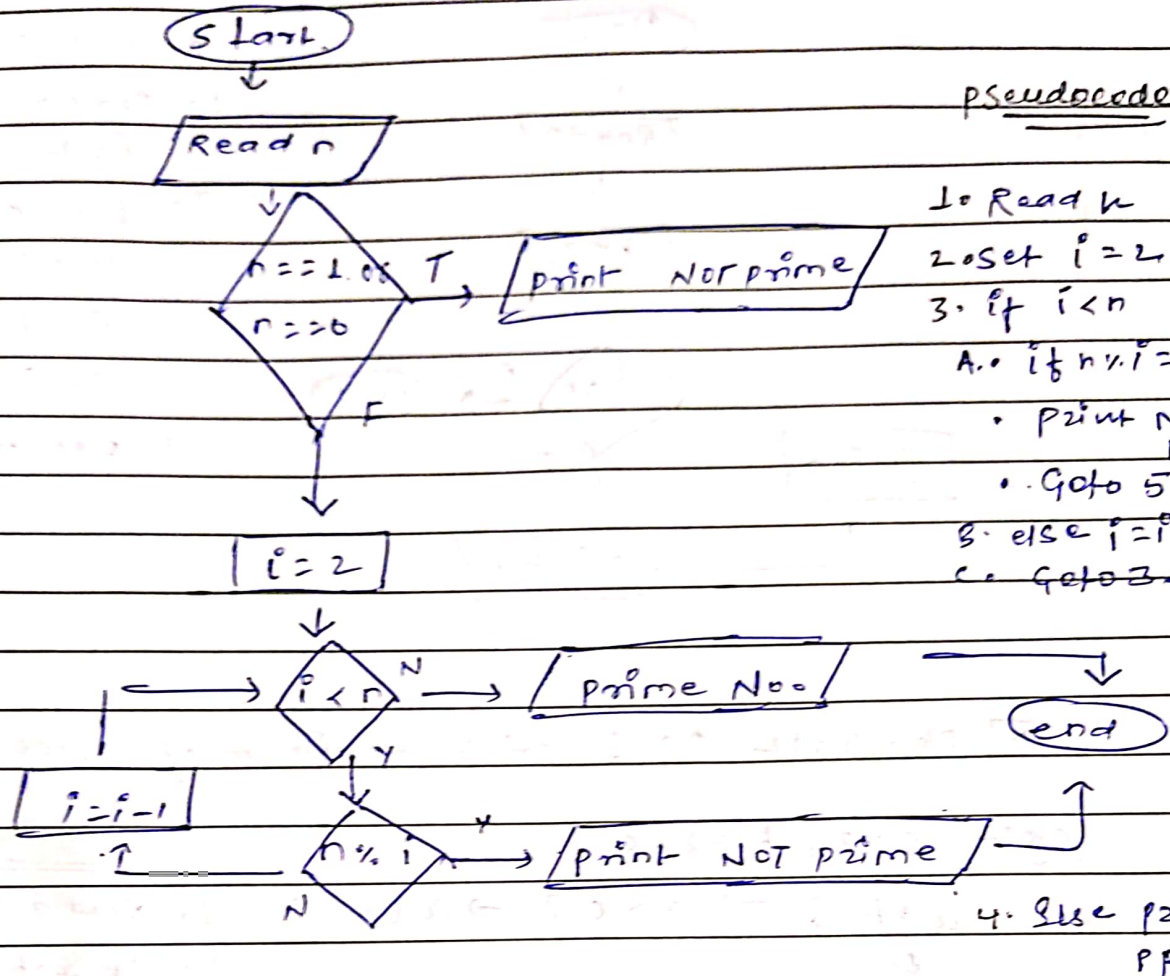 Start
Read n
n==1 or
n==0
T
print NOT prime
F
i=2
i<n
N
prime No.
end
Y
i=i-1
n% i
Y
print NOT prime
N
pseudocode
1. Read n
2. Set i=2
3. if i<n
A.. if n%i=
. print N
. Goto 5
B. else i=i
C. Goto 3.
4. Else pr